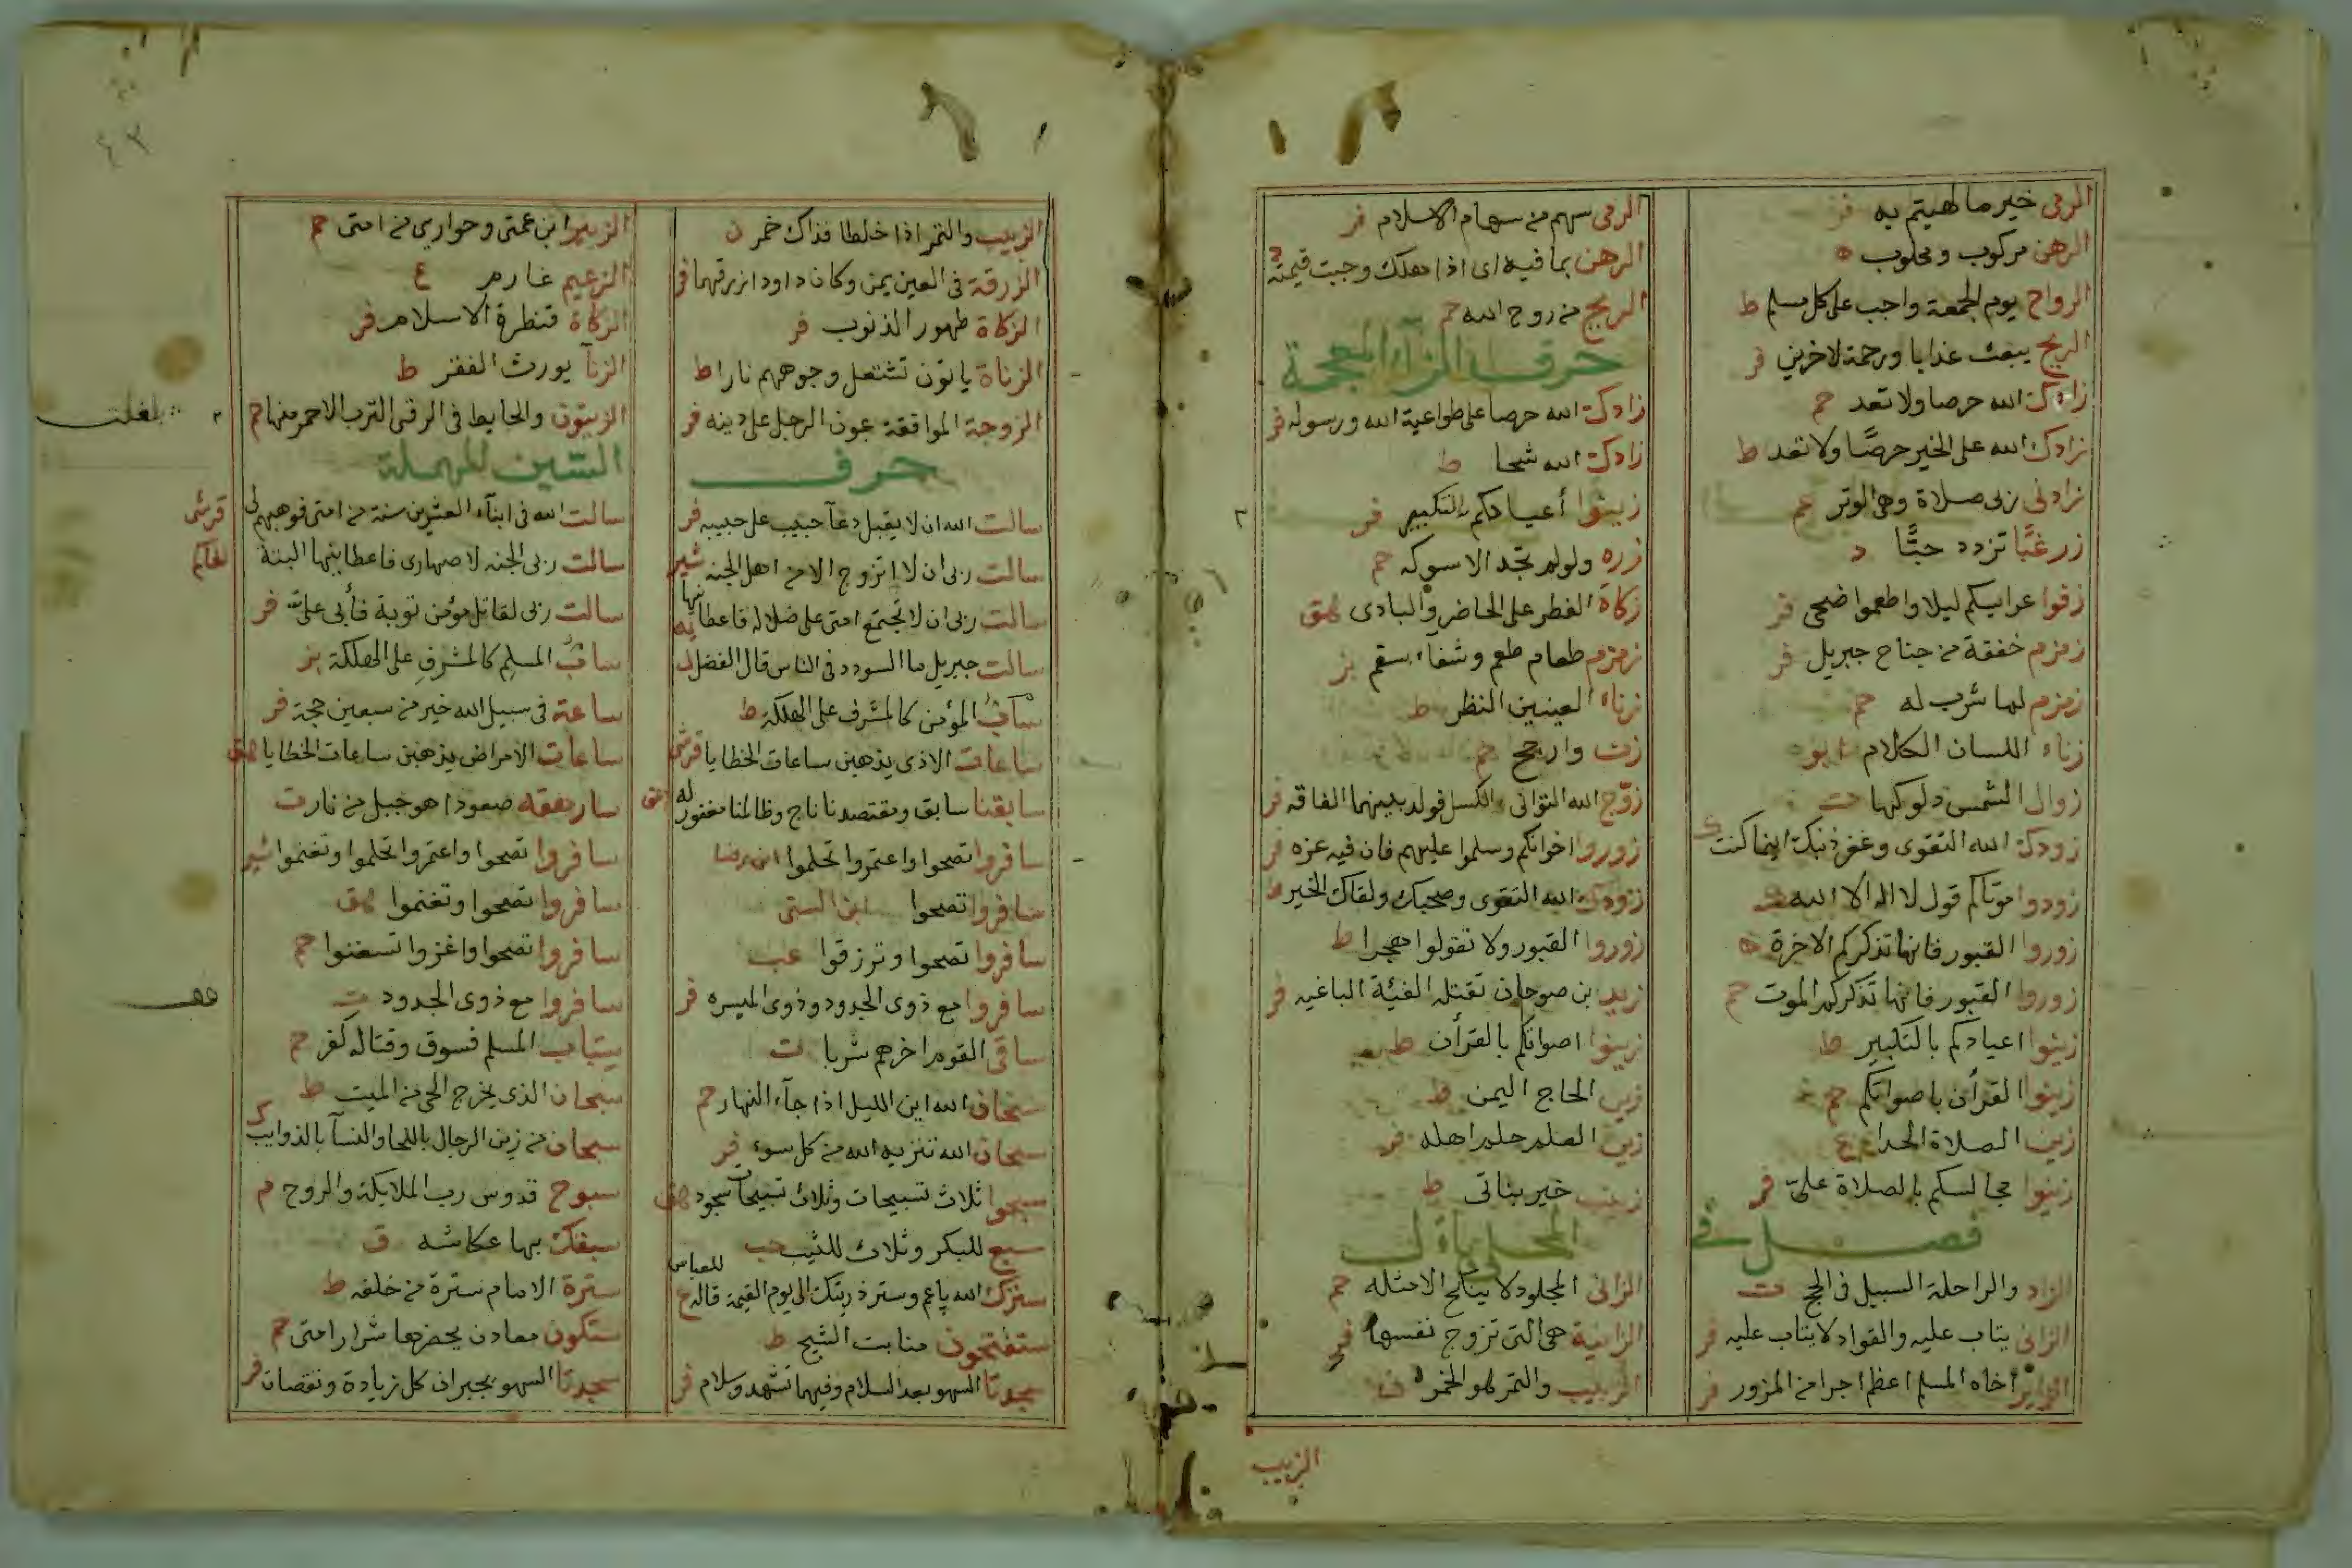 الرمى خير ما لهيتم به فر
الرهن مركوب ومحلوب ه
الرواح يوم الجمعة واجب على كل مسلم ط
الريح يبعث عذابا ورحمة لاخرين فر
زادك الله حرصا ولا تعد حم
زادك الله على الخير حرصًا ولا تعد ط
زادنى ربى صلاة وهى الوتر حم
زر غبًّا تزدد حبًّا د
زفوا عرايسكم ليلا واطعموا ضحى فر
زمزم خفقة من جناح جبريل فر
زمزم لما شرب له حم
زناء اللسان الكلام ابو
زوال الشمس دلوكها
زودك الله التقوى وغفر ذنبك اينما كنت ك
زودوا موتاكم قول لا اله الا الله
زوروا القبور فانها تذكركم الاخرة ه
زوروا القبور فانها تذكركم الموت حم
زينوا اعيادكم بالتكبير ط
زينوا القرأن باصواتكم حم
زين الصلاة الحدا ع
زينوا مجالسكم بالصلاة علىّ فر
فصل فى
الزاد والراحلة السبيل فى الحج ت
الزانى يتاب عليه والقواد لا يتاب عليه فر
الزاير اخاه المسلم اعظم اجرا من المزور فر
الرمى سهم من سهام الاسلام فر
الرهن بما فيه اى اذا هلك وجبت قيمته
الريح من روح الله حم
حرف الزاء المعجمة
زادك الله حرصا على طواعية الله ورسوله فر
زادك الله شحا ط
زينوا أعيادكم بالتكبير فر
زره ولو لم تجد الا سوكه حم
زكاة الفطر على الحاضر والبادى هق
زمزم طعام طعم وشفاء سقم بز
زناء العينين النظر ط
زن وارجح حم
زوّج الله التوانى بالكسل فولد بينهما الفاقه فر
زوروا اخوانكم وسلموا عليهم فان فيه عزه فر
زودك الله التقوى وصحبك ولقاك الخير ط
زوروا القبور ولا تقولوا هجرا ط
زيد بن صوحان تقتله الفئة الباغيه فر
زينوا اصواتكم بالقرأن ط
زين الحاج اليمن ط
زين العلم حلم اهله فر
زينب خير بناتى ط
المحلى بال
الزانى المجلود لا ينكح الا مثله حم
الزانية هى التى تزوج نفسها فر
الزبيب والتمر هو الخمر
الزبيب
الزبيب والتمر اذا خلطا فذاك خمر ن
الزرقة فى العين يمن وكان داود ازرقهما فر
الزكاة طهور الذنوب فر
الزناة ياتون تشتعل وجوههم نارا ط
الزوجة الموافقة عون الرجل على دينه فر
حرف
سالت الله ان لا يقبل دعآ حبيب على حبيبه فر
سالت ربى ان لا اتزوج الا من اهل الجنه شير
سالت ربى ان لا تجتمع امتى على ضلاله فاعطانيها
سالت جبريل ما السودد فى الناس قال الفضل
سابُّ المؤمن كالمشرف على الهلكة ط
ساعات الاذى يذهبن ساعات الخطايا قرشى
سابقنا سابق ومقتصدنا ناج وظالمنا مغفور له هق
سافروا تصحوا واعتمروا تحلموا
سافروا تصحوا ابن السنى
سافروا تصحوا وترزقوا عب
سافروا مع ذوى الجدود وذوى الميسره فر
ساقى القوم اخرهم شربا ت
سبحان الله اين الليل اذا جآء النهار حم
سبحان الله تنزيه الله من كل سوء فر
سبحوا ثلاث تسبيحات وثلاث تسبيحات سجود هق
سبع للبكر وثلاث للثيب حب
سترك الله ياعم وستر ذريتك الى يوم القيمة قاله للعباس
ستفتحون منابت الشيح ط
سجدتا السهو بعد السلام وفيهما تشهد وسلام فر
الزبير ابن عمتى وحوارى من امتى حم
الزعيم غارم ع
الزكاة قنطرة الاسلام فر
الزنآ يورث الفقر ط
الزيتون والحايط فى الرقى الترب الاحمر منها حم
بلغت
السّين المهملة
سالت الله فى ابنآء العشرين سنة من امتى فوهبهم لى قرشى
سالت ربى الجنه لاصهارى فاعطانيها البتة
سالت ربى لقاتل مؤمن توبة فأبى علىّ فر
سابّ المسلم كالمشرف على الهلكة بز
ساعة فى سبيل الله خير من سبعين حجة فر
ساعات الامراض يذهبن ساعات الخطايا هق
سارهقه صعودا هو جبل من نار ت
سافروا تصحوا واعتمروا تحلموا وتغنموا شير
سافروا تصحوا وتغنموا هق
سافروا تصحوا واغزوا تستغنوا حم
سافروا مع ذوى الجدود ت
سباب المسلم فسوق وقتاله كفر حم
سبحان الذى يخرج الحى من الميت ط
سبحان من زين الرجال باللحا والنسآ بالذوايب ك
سبوح قدوس رب الملايكة والروح م
سبقك بها عكاشه ق
سترة الامام سترة من خلفه ط
ستكون معادن يحضرها شرار امتى حم
سجدتا السهو يجبران كل زيادة ونقصان فر